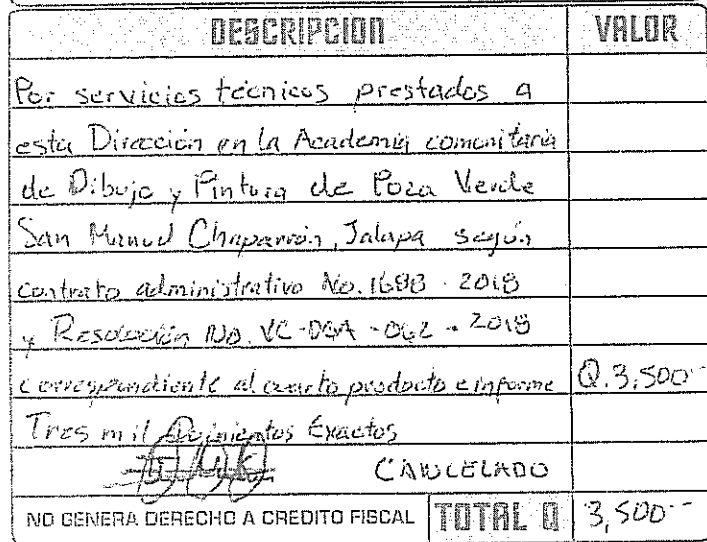 DESCRIPCION VALOR
Por servicios técnicos prestados a
esta Dirección en la Academia comunitaria
de Dibujo y Pintura de Poza Verde
San Manuel Chaparrón, Jalapa según
contrato administrativo No. 1688-2018
y Resolución No. VC-DGA-062-2018
correspondiente al cuarto producto e informe Q.3,500--
Tres mil Quinientos Exactos
CANCELADO
NO GENERA DERECHO A CREDITO FISCAL TOTAL Q 3,500.--